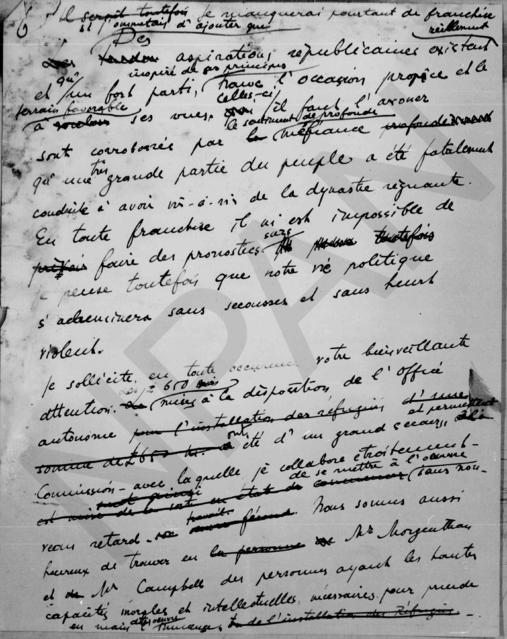 je manquerai pourtant de franchise
si j'omettais d'ajouter que réellement
Des aspirations républicaines existent
et qu'un fort parti, inspiré de ses principes, trouve l'occasion propice et le
terrain favorable
à ses vues. celles-ci il faut l'avouer
sont corroborées par le sentiment de profonde méfiance
qu'une très grande partie du peuple a été fatalement
conduite à avoir vis-à-vis de la dynastie régnante.
En toute franchise il m'est impossible de
faire des pronostics sûrs
je pense toutefois que notre vie politique
s'acheminera sans secousses et sans heurt
violent.
Je sollicite en toute occurence votre bienveillante
attention. Les £ 650 mis à la disposition de l'Office
autonome pour l'installation des réfugiés d'une
somme de £ 650 ont été d'un grand secours et permettent à la
Commission - avec laquelle je collabore étroitement -
de se mettre à l'oeuvre sans nou-
veau retard. Nous sommes aussi
heureux de trouver en la personne Mr Morgenthau
et de Mr Campbell des personnes ayant les hautes
capacités morales et intellectuelles nécessaires pour prendre
en main de l'installation des Réfugiés.
NPAN